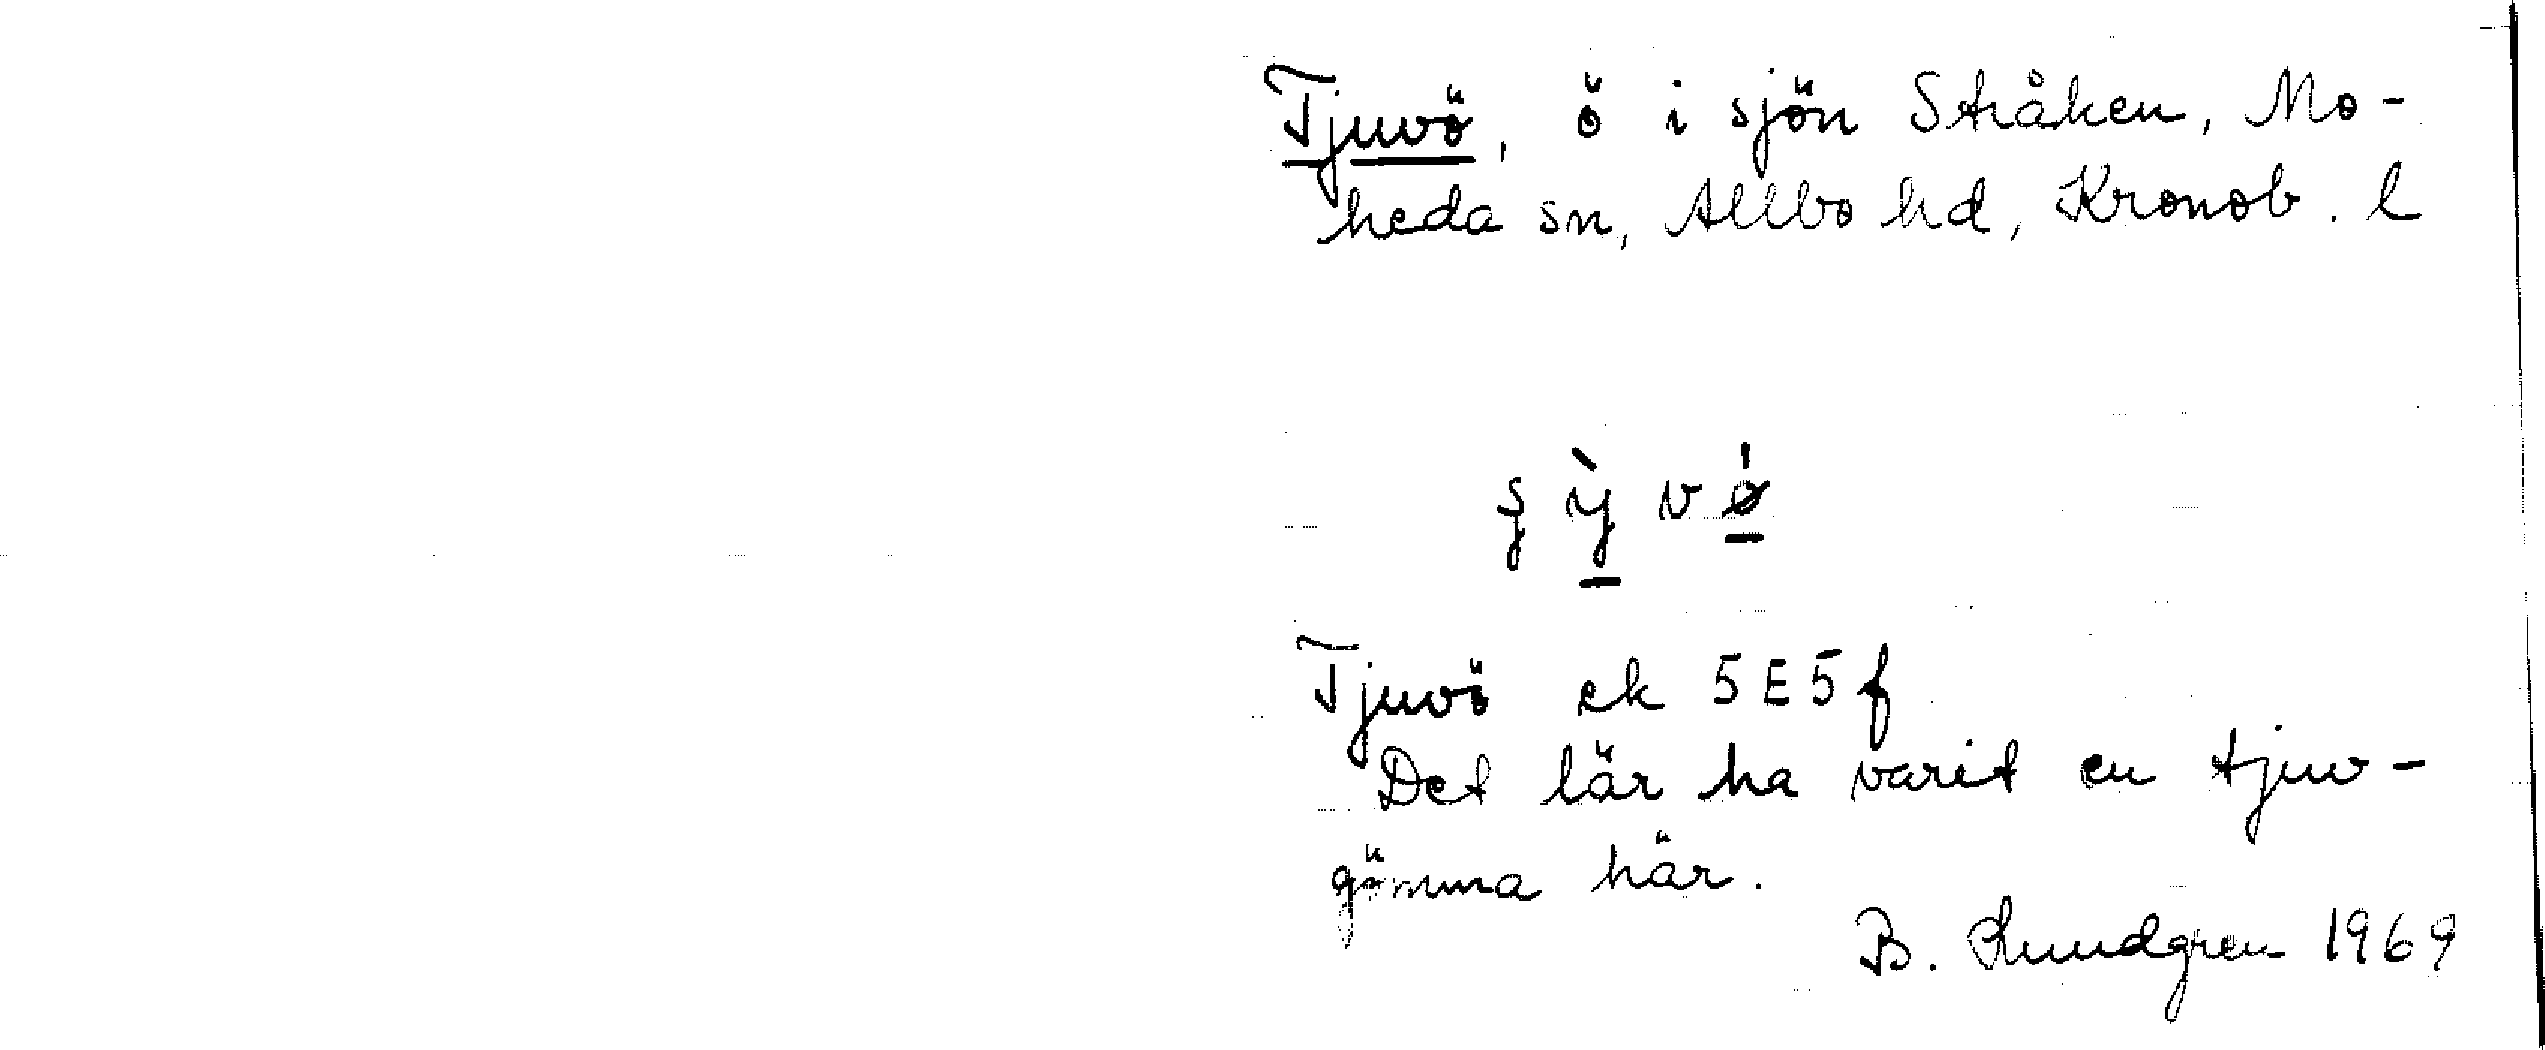 Tjuvö, ö i sjön Stråken, Mo-
heda sn, Allbo hd, Kronob. l
Tjuvö ek 5E5f
Det lär ha varit en tjuv-
gömma här.
B. Lundgren 1969